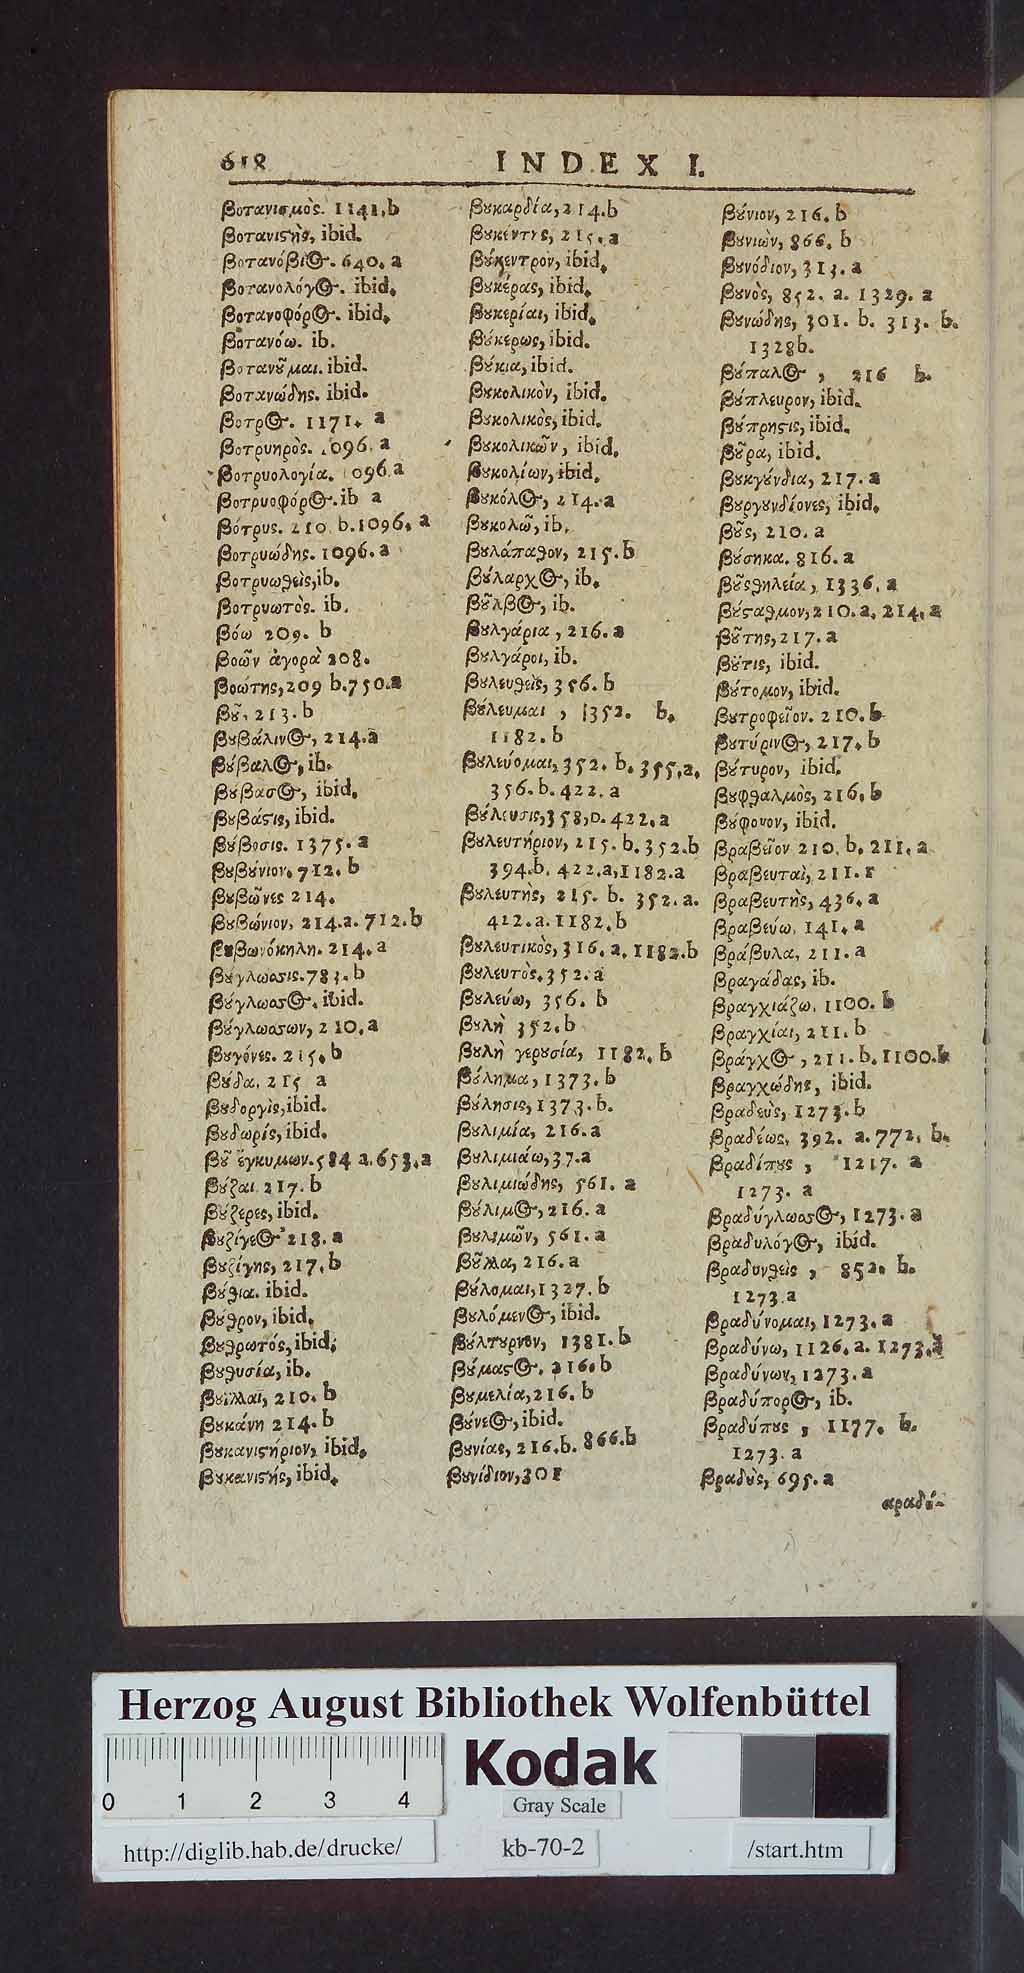 618 INDEX I.
βοτανισμὸς. 1141.b
βοτανιϛὴς, ibid.
βοτανόβιος. 640. a
βοτανολόγος. ibid.
βοτανοφόρος. ibid.
βοτανόω. ib.
βοτανȣ͂μαι. ibid.
βοτανώδης. ibid.
βοτρος. 1171. a
βοτρυηρὸς. 1096. a
βοτρυολογία. 1096.a
βοτρυοφόρος.ib a
βότρυς. 210. b.1096. a
βοτρυώδης. 1096. a
βοτρυωθεὶς,ib.
βοτρυωτὸς. ib.
βόω 209. b
βοῶν ἀγορὰ 208.
βοώτης,209 b.750.a
βȣ͂, 213. b
βȣβάλινος, 214.a
βȣ́βαλος, ib.
βȣ́βασος, ibid.
βȣβάϛις, ibid.
βȣ́βοσις. 1375. a
βȣβȣ́νιον. 712. b
βȣβῶνες 214.
βȣβώνιον, 214.a. 712.b
βȣβωνόκηλη. 214. a
βȣ́γλωσσις. 783. b
βȣ́γλωσσος. ibid.
βȣγλώσσων, 210. a
βȣγόνες. 215. b
βȣ́δα. 215 a
βȣδοργὶς,ibid.
βȣδωρίς, ibid.
βȣ͂ ἔγκυμων. 584 a. 653. a
βȣ́ζαι. 217. b
βȣ́ζερες, ibid.
βȣζίγεος 218. a
βȣζίγης, 217. b
βȣ́θια. ibid.
βȣ́θρον, ibid.
βȣθρωτός, ibid.
βȣθυσία, ib.
βȣϊλλαί, 210. b
βȣκάνη 214. b
βȣκανιϛήριον, ibid.
βȣκανιϛής, ibid.
βȣκαρδία, 214.b
βȣκέντης, 215. a
βȣ́κεντρον, ibid.
βȣκέρας, ibid.
βȣκερίαι, ibid.
βȣ́κερως, ibid.
βȣ́κια, ibid.
βȣκολικὸν, ibid.
βȣκολικὸς, ibid.
βȣκολικῶν, ibid.
βȣκολίων, ibid.
βȣκόλος, 214. a
βȣκολῶ, ib.
βȣλάπαθον, 215. b
βȣ́λαρχος, ib.
βȣ͂λβος, ib.
βȣλγάρια, 216. a
βȣλγάροι, ib.
βȣλευθεὶς, 356. b
βȣ́λευμαι, 352. b.
1182. b
βȣλεύομαι, 352. b. 355. a.
356. b. 422. a
βȣ́λευσις, 358, b. 422. a
βȣλευτήριον, 215. b. 352.b
394.b. 422.a, 1182.a
βȣλευτὴς, 215. b. 352. a.
422. a. 1182. b
βȣλευτικὸς, 316. a. 1182. b
βȣλευτὸς. 352. a
βȣλεύω, 356. b
βȣλὴ 352. b
βȣλὴ γερȣσία, 1182. b
βȣ́λημα, 1373. b
βȣ́λησις, 1373. b.
βȣλιμία, 216. a
βȣλιμιάω, 37. a
βȣλιμιώδης, 561. a
βȣ́λιμος, 216. a
βȣλιμῶν, 561. a
βȣ͂λλα, 216. a
βȣ́λομαι, 1327. b
βȣλόμενος, ibid.
βȣ́λτυρνον, 1381. b
βȣ́μαϛος. 216. b
βȣμελία, 216. b
βȣ́νεος, ibid.
βȣνίας, 216. b. 866.b
βȣνίδιον, 301
βȣ́νιον, 216. b
βȣνιὼν, 866. b
βȣνόδιον, 313. a
βȣνὸς, 852. a. 1329. a
βȣνώδης, 301. b. 313. b.
1328b.
βȣ́παλος, 216 b.
βȣ́πλευρον, ibid.
βȣ́πρησις, ibid.
βȣ͂ρα, ibid.
βȣκγȣ́νδια, 217. a
βȣργȣνδίονες, ibid.
βȣ͂ς, 210. a
βȣ́σηκα. 816. a
βȣ͂ςθηλεία, 1336. a
βȣ́ϛαθμον, 210. a. 214. a
βȣ́της, 217. a
βȣ͂τις, ibid.
βȣ́τομον, ibid.
βȣτροφεῖον. 210. b
βȣτύρινος, 217. b
βȣ́τυρον, ibid.
βȣφθαλμὸς, 216. b
βȣ́φονον, ibid.
βραβεῖον 210. b. 211. a
βραβευταὶ, 211.
βραβευτὴς, 436. a
βραβεύω. 141. a
βράβυλα, 211. a
βραγάδας, ib.
βραγχιάζω. 1100. b
βραγχίαι, 211. b
βράγχος, 211. b. 1100.b
βραγχώδης, ibid.
βραδεὺς, 1273. b
βραδέως. 392. a. 772. b.
βραδίπȣς, 1217. a
1273. a
βραδύγλωσσος, 1273. a
βραδυλόγος, ibid.
βραδυνθεὶς, 852. b.
1273.a
βραδύνομαι, 1273. a
βραδύνω, 1126. a. 1273.a
βραδύνων, 1273. a
βραδύπορος, ib.
βραδύπȣς, 1177. b.
1273. a
βραδὺς, 695. a
αραδύ-
Herzog August Bibliothek Wolfenbüttel
0 1 2 3 4
Kodak
Gray Scale
http://diglib.hab.de/drucke/ kb-70-2 /start.htm